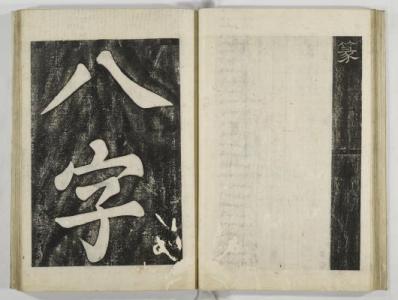 篆
八字